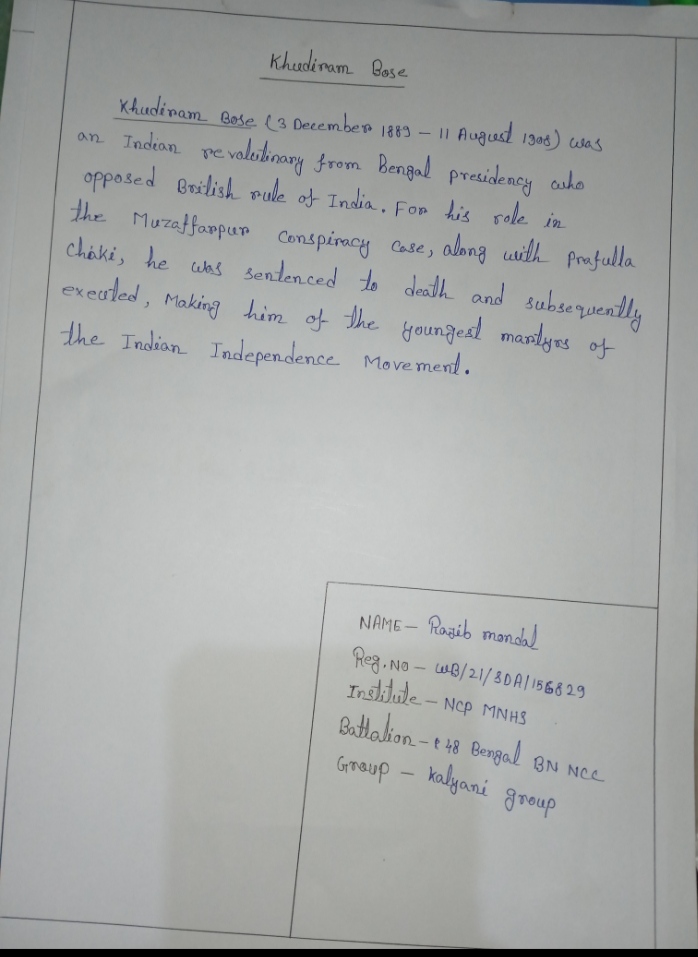 Khudiram Bose
Khudiram Bose (3 December 1889 – 11 August 1908) was
an Indian revolutinary from Bengal presidency who
opposed British rule of India. For his role in
the Muzaffarpur Conspiracy Case, along with Prafulla
Chaki, he was sentenced to death and subsequently
executed, Making him of the youngest martyrs of
the Indian Independence Movement.
NAME – Rajib mondal
Reg. No – WB/21/SDA/156829
Institute – NCP MNHS
Battalion – 48 Bengal BN NCC
Group – Kalyani group